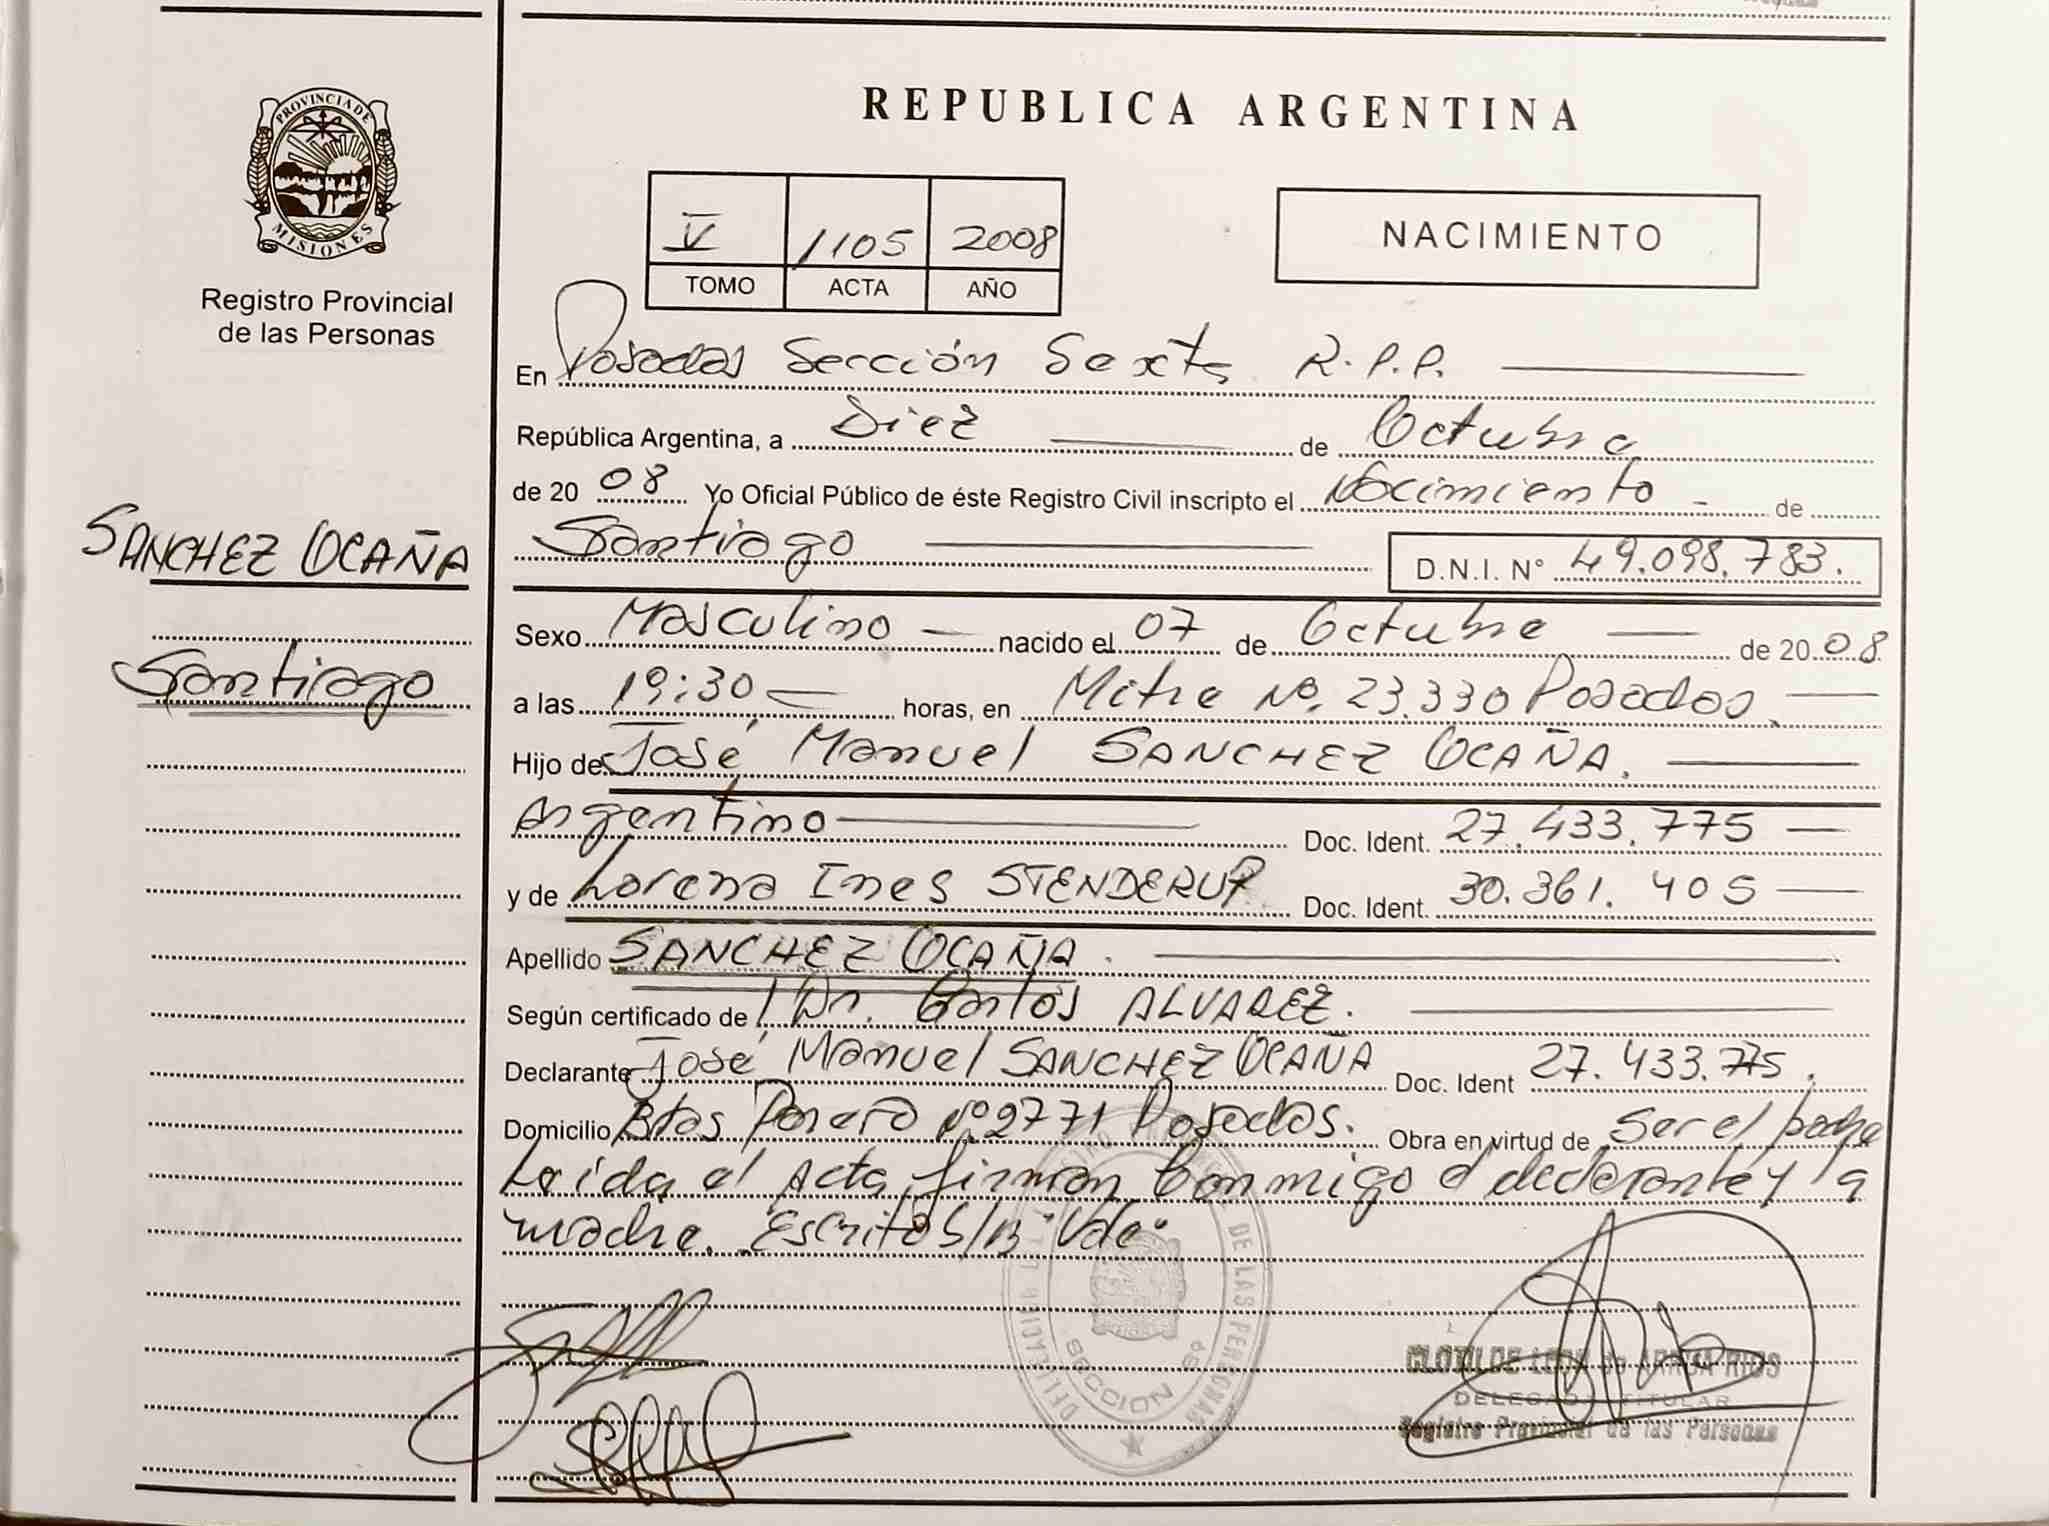 PROVINCIA DE
MISIONES
Registro Provincial
de las Personas
SANCHEZ OCAÑA
Santiago
REPUBLICA ARGENTINA
V 1105 2008
TOMO ACTA AÑO
NACIMIENTO
En Posadas Sección Sexta R.P.P.
República Argentina, a Diez de Octubre
de 20 08 Yo Oficial Público de éste Registro Civil inscripto el Nacimiento de
Santiago D.N.I. N° 49.098.783.
Sexo Masculino nacido el 07 de Octubre de 20 08
a las 19:30 horas, en Mitre Nº. 23.330 Posadas.
Hijo de José Manuel SANCHEZ OCAÑA.
Argentino Doc. Ident. 27.433.775
y de Lorena Ines STENDERUP Doc. Ident. 30.361.405
Apellido SANCHEZ OCAÑA.
Según certificado de Dr. Carlos ALVAREZ.
Declarante José Manuel SANCHEZ OCAÑA Doc. Ident 27.433.775.
Domicilio Nº 2771 Posadas. Obra en virtud de Ser el padre
Leída el Acta, firman Conmigo el declarante y la
madre. Escrito S/B "Vale"
DE LAS PERSONAS
SECCION 6º
CLOTILDE LEON de RIOS
DELEGADA TITULAR
Registro Provincial de las Personas